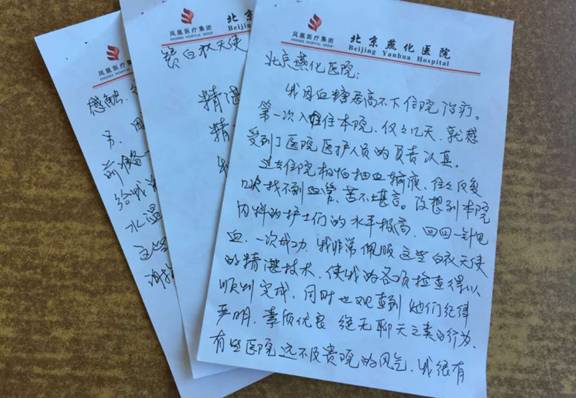 凤凰医疗集团
PHOENIX HEALTHCARE GROUP
北京燕化医院
Beijing Yanhua Hospital
北京燕化医院：
我因血糖居高不下住院治疗。
第一次入住本院，仅之几天，就感
受到了医院医护人员的负责认真。
过去住院和怕抽血输液，往之反复
几次找不到血管，苦不堪言。没想到本院
内科的护士们的水平极高，回回一针见
血，一次成功，我非常佩服这些白衣天使
的精湛技术，使我的各项检查得以
顺利完成，同时也观查到她们纪律
严明，素质优容，绝无聊天之类的行为，
有些医院远不及贵院的风气，我很有
凤凰医疗集团
PHOENIX HEALTHCARE GROUP
北京
Beijing
赞白衣天使
精湛
精
凤凰医疗集团
PHOENIX HEALTHCARE GROUP
感触
另
前
给
水温
这些
谢